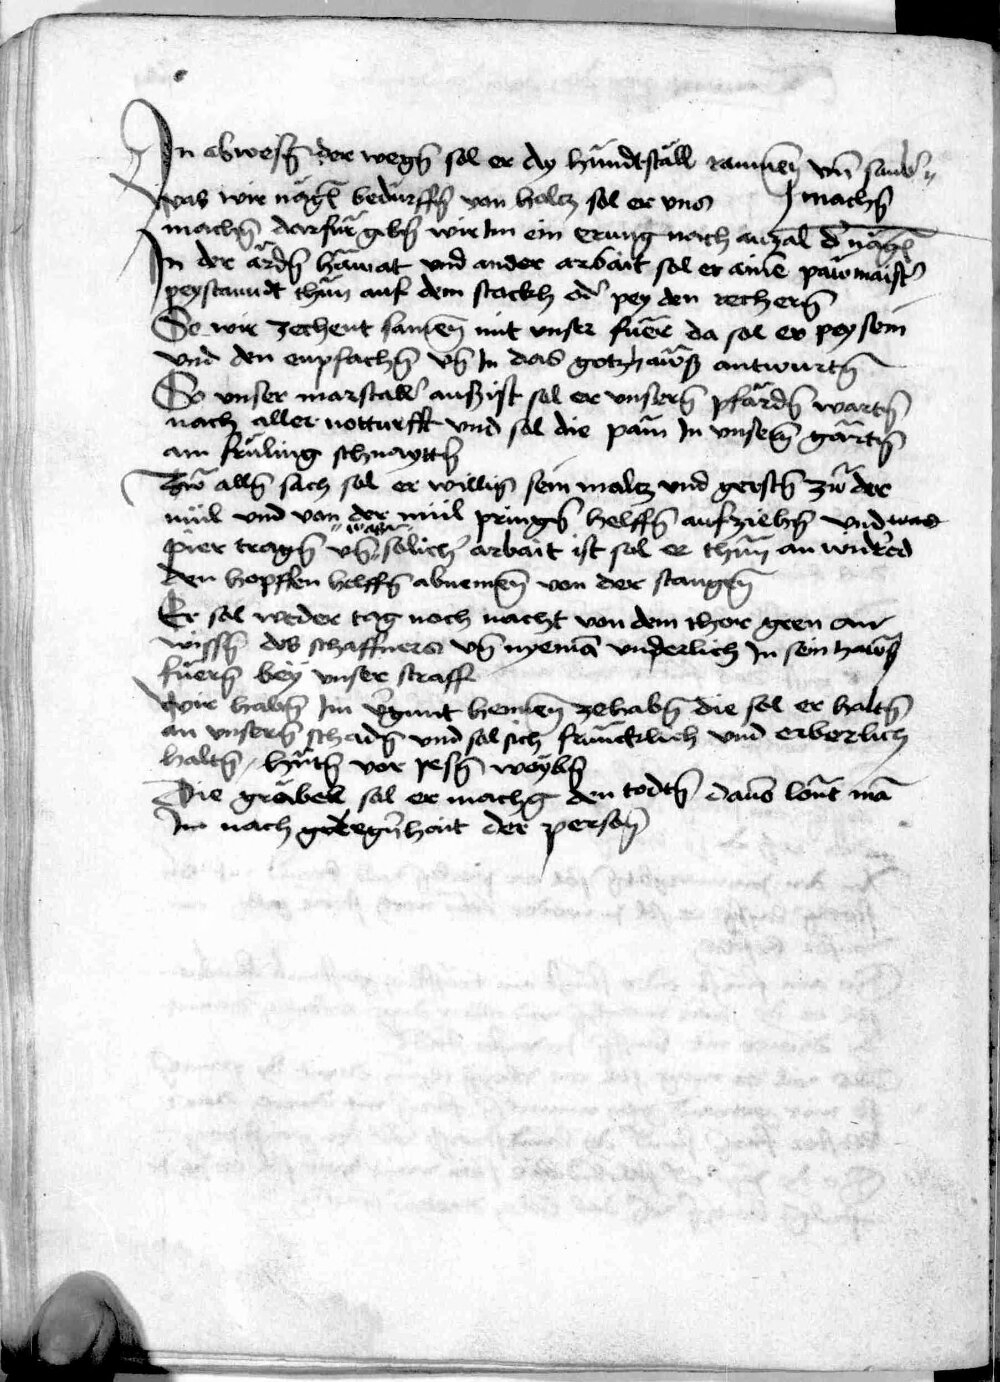 In abwesn̄ der wegn̄ sol er dy hundtställ raumen̄ vn̄ sauber
was wir nägl bedürffn̄ von holtz sol er vns machn̄
machn̄ darfür gebn̄ wir Im ein erung nach anzal d' nägl
In der ärdn̄ häwat vnd ander arbait sol er aine pawmaist'
peystanndt thun auf dem stackh od' pey den rechern̄
So wir zechent samen̄ mit vnser fuer da sol er pey sein
vnd den enpfachn̄ vn̄ In das gotzhawß antwurtn̄
So vnser marstall' auß ist sol er vnsern̄ pfärdn̄ wartn̄
nach aller notturfft vnd sol die päm In vnsern̄ gärtn̄
am früling schnayttn̄
Zw alln̄ sach sol er willig sein maltz vnd gerstn̄ zw der
mül vnd von der mül pringn̄ helffn̄ aufziehn̄ vnd was
pier tragn̄ vn̄ solich' arbait ist sol er thun an widered
den hopffen helffn̄ abnemen̄ von der stangen̄
Er sol weder tag noch nacht von dem thor geen an
wissn̄ des schaffners vn̄ nyemā vnderlich In sein hawß
füern̄ bey vnser straff
Wir habn̄ Im v'gunt hennen̄ zehabn̄ die sol er haltn̄
an vnsern̄ schadn̄ vnd sol sich frümcklich vnd erberlich
haltn̄ / hütn̄ vor pesn̄ weybn̄
Die gräber sol er machn̄ den todtn̄ dauō lont mā
Im nach gelegn̄hait der person̄